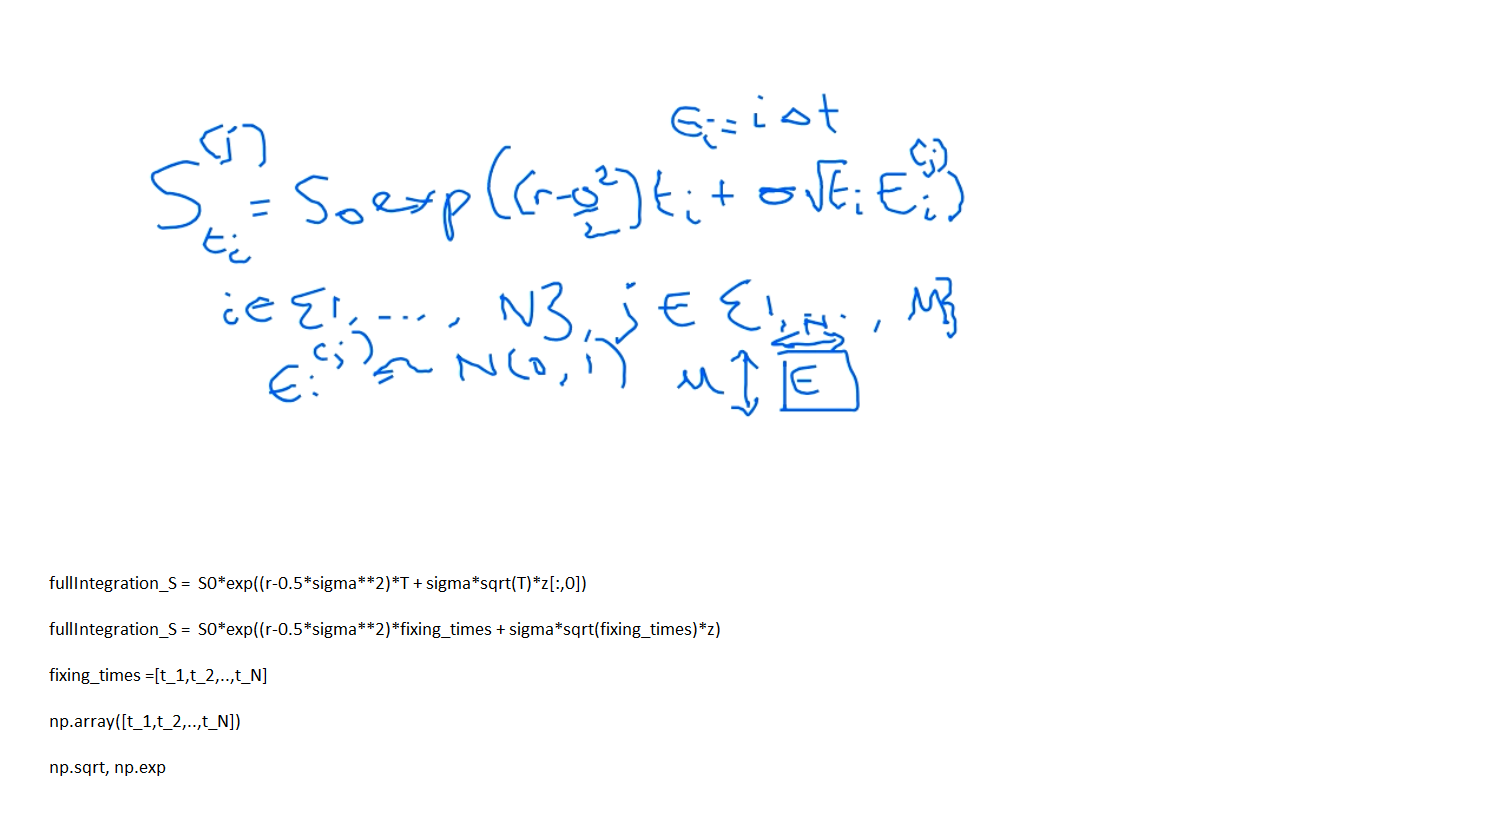 t_i = i Δt
S_{t_i}^{(j)} = S_0 exp((r - σ²/2) t_i + σ √t_i E_i^{(j)})
i ∈ {1, ..., N}, j ∈ {1, ..., M}
N
ϵ_i^{(j)} ~ N(0,1) M E
fullIntegration_S = S0*exp((r-0.5*sigma**2)*T + sigma*sqrt(T)*z[:,0])
fullIntegration_S = S0*exp((r-0.5*sigma**2)*fixing_times + sigma*sqrt(fixing_times)*z)
fixing_times =[t_1,t_2,..,t_N]
np.array([t_1,t_2,..,t_N])
np.sqrt, np.exp